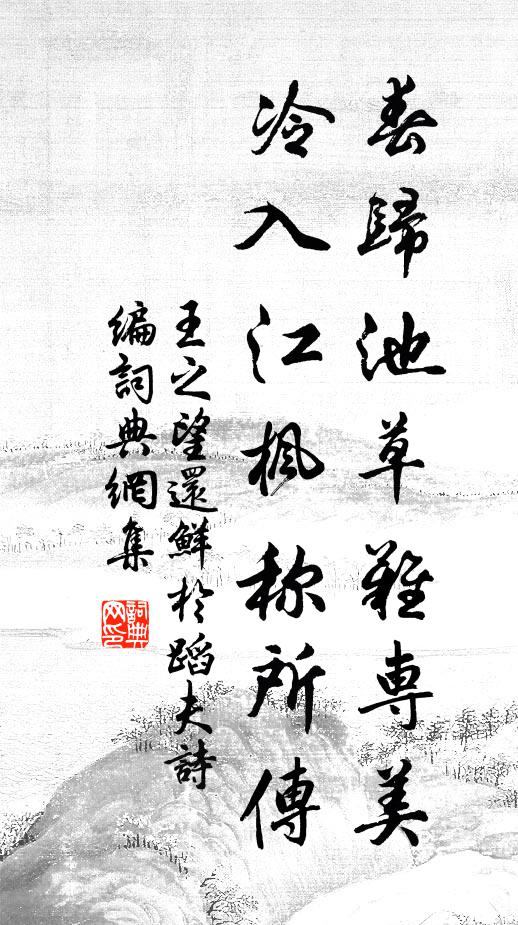 春歸池草難専美
冷入江楓称所傳
王之望還鮮於蹈夫詩
編詞典網集
詞典网印